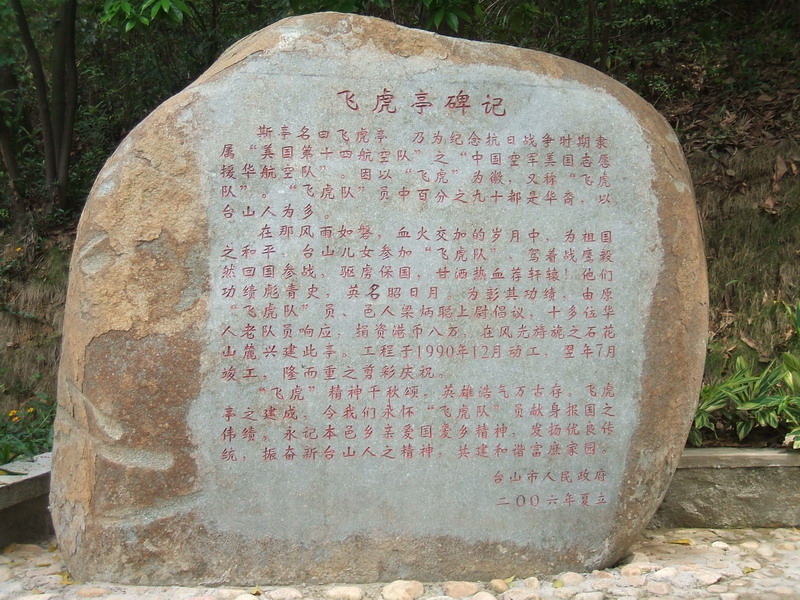 飞虎亭碑记
斯亭名曰飞虎亭 乃为纪念抗日战争时期隶
属“美国第十四航空队”之“中国空军美国志愿
援华航空队”。因以“飞虎”为徽,又称“飞虎
队”。“飞虎队”员中百分之九十都是华裔,以
台山人为多。
在那风雨如磐,血火交加的岁月中,为祖国
之和平,台山儿女参加“飞虎队”,驾着战鹰毅
然回国参战,驱虏保国,甘洒热血荐轩辕!他们
功绩彪青史,英名昭日月。为彭其功绩,由原
“飞虎队”员、邑人梁炳聪上尉倡议,十多位华
人老队员响应,捐资港币八万,在风光旖旎之石花
山麓兴建此亭。工程于1990年12月动工,翌年7月
竣工,隆而重之剪彩庆祝。
“飞虎”精神千秋颂,英雄浩气万古存。飞虎
亭之建成,令我们永怀“飞虎队”员献身报国之
伟绩。永记本邑乡亲爱国爱乡精神,发扬优良传
统,振奋新台山人之精神,共建和谐富庶家园。
台山市人民政府
二〇〇六年夏立